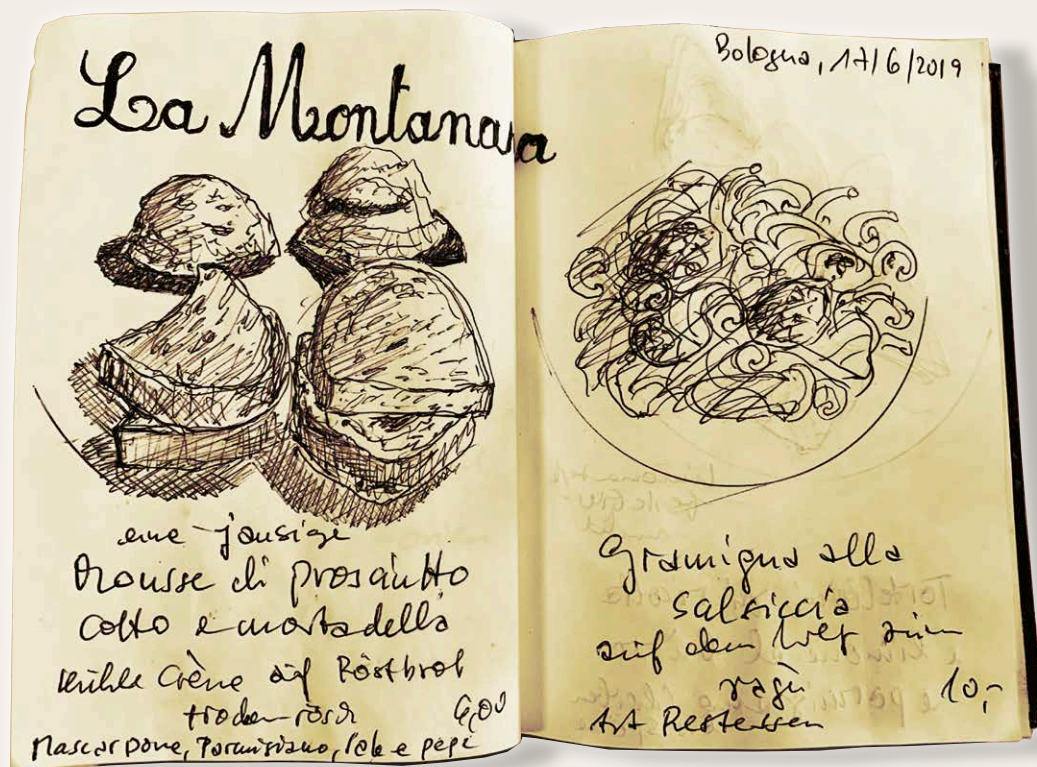 La Montanara
eine
Mousse di prosciutto
cotto e mortadella
kühle Crème auf Röstbrot
trocken rösch 6,00
Mascarpone, Parmigiano, sale e pepe
Bologna, 17/6/2019
Gramigna alla
salsiccia
auf dem Weg zum
ragù 10,-
Art Restessen